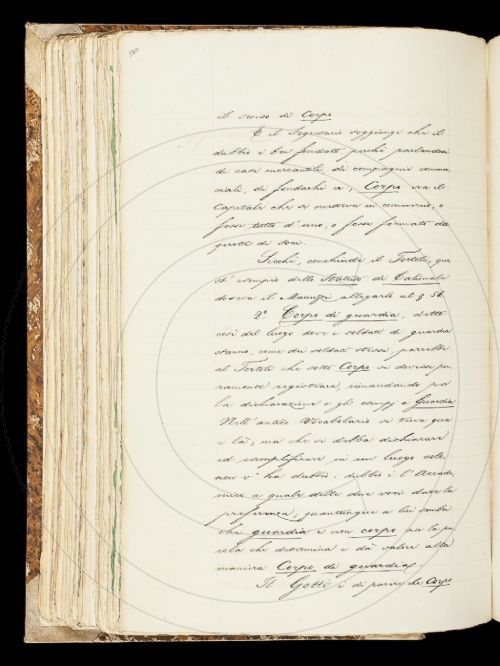 580
il senso di Corpo
E il Segretario soggiunge che il
dubbio è ben fondato, perchè parlandosi
di case mercantili, di compagnie commer
ciali, di fondachi &, Corpo era il
Capitale che si metteva in comune, o
fosse tutto d'uno, o fosse formato da
quote di soci.
Sicchè, conchiude il Tortoli, que
st'esempio dello Statuto di Calimala
doveva il Manuzzi allegarlo al § 56.
9.° Corpo di guardia, detto
così del luogo dove i soldati di guardia
stanno, come dei soldati stessi, parrebbe
al Tortoli che sotto Corpo si dovesse pu
ramente registrare, rimandando per
la dichiarazione e gli esempj a Guardia
Nell'antico Vocabolario si trova qua
e là; ma che si debba dichiarare
ed esemplificare in un luogo solo,
non v'ha dubbio: dubbio è l'Accade
mico a quale delle due voci dare la
preferenza, quantunque a lui sembri
che guardia e non corpo sia la pa
rola che determina e dà valore alla
maniera Corpo di guardia.
Il Gotti è di parere che Corpo